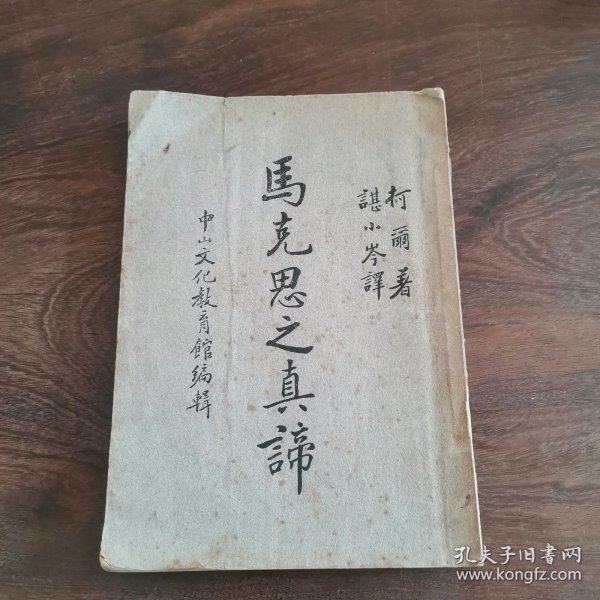 柯爾著
諶小岑譯
馬克思之真諦
中山文化教育館編輯
孔夫子旧书网
www.kongfz.com